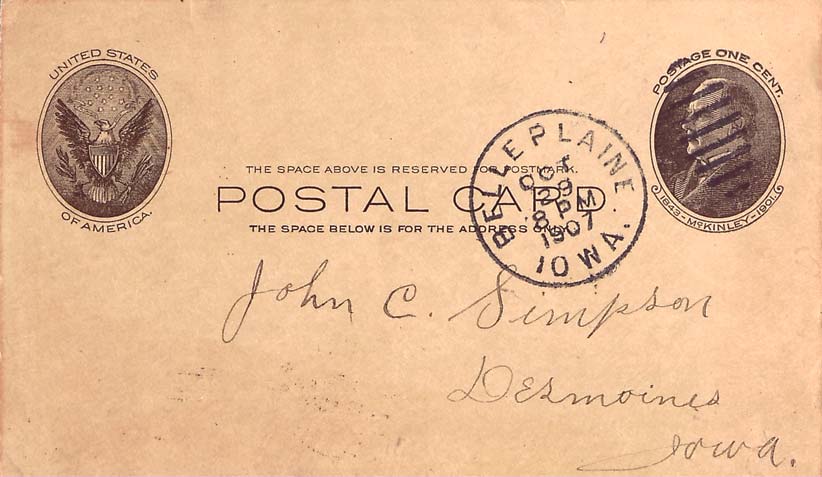 UNITED STATES
OF AMERICA.
POSTAGE ONE CENT.
1843-McKINLEY-1901.
THE SPACE ABOVE IS RESERVED FOR POSTMARK.
POSTAL CARD.
THE SPACE BELOW IS FOR THE ADDRESS ONLY.
BELLE PLAINE
OCT
29
8 PM
1907
IOWA.
John C. Simpson
Desmoines
Iowa.